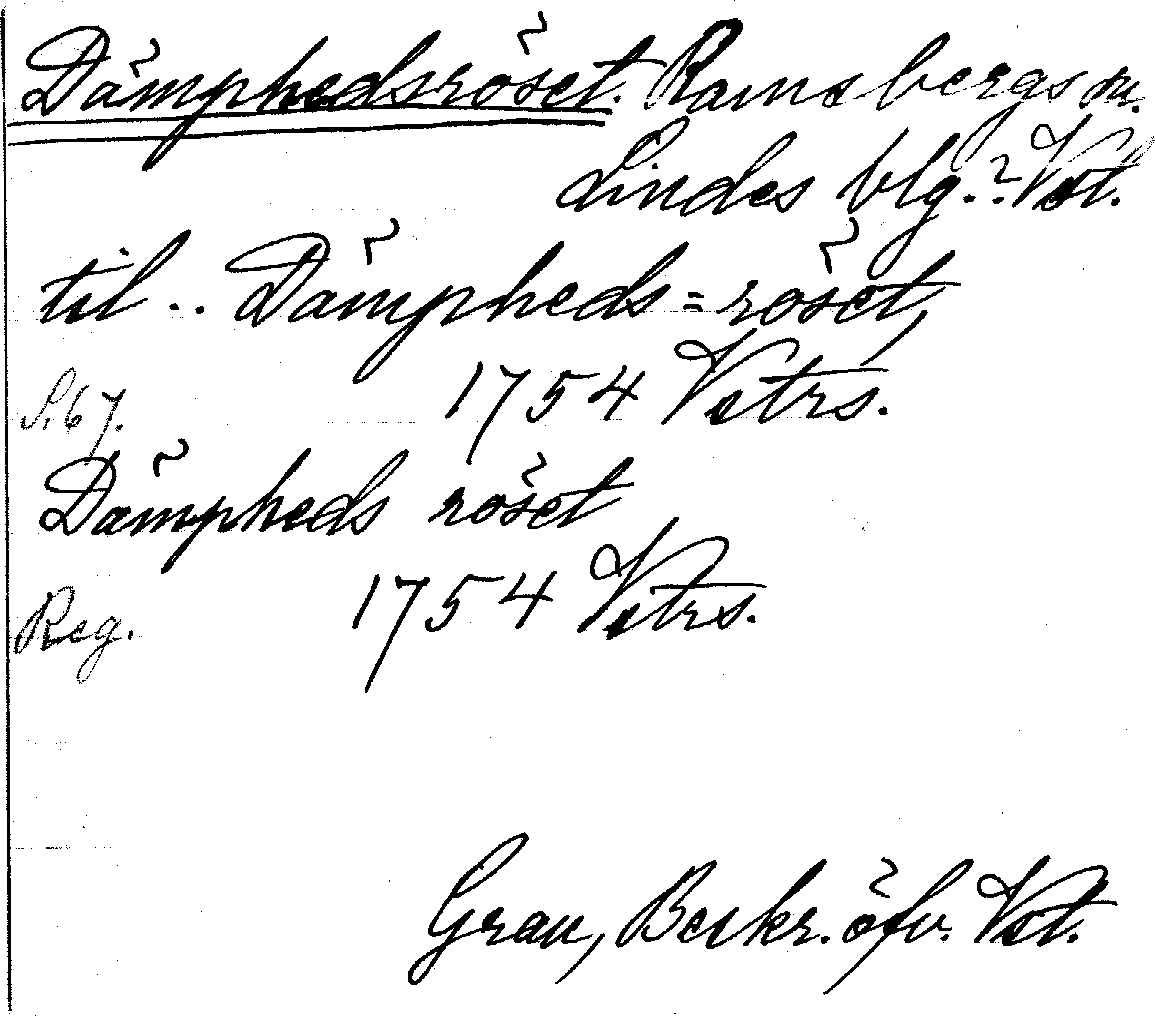 Dämphedsröset. Ramsbergs sn.
Lindes blg.? Vstl.
til .. Dämpheds=röset,
S. 67. 1754 Vstrs.
Dämpheds röset
Reg. 1754 Vstrs.
Grau, Beskr. öfv. Vstl.